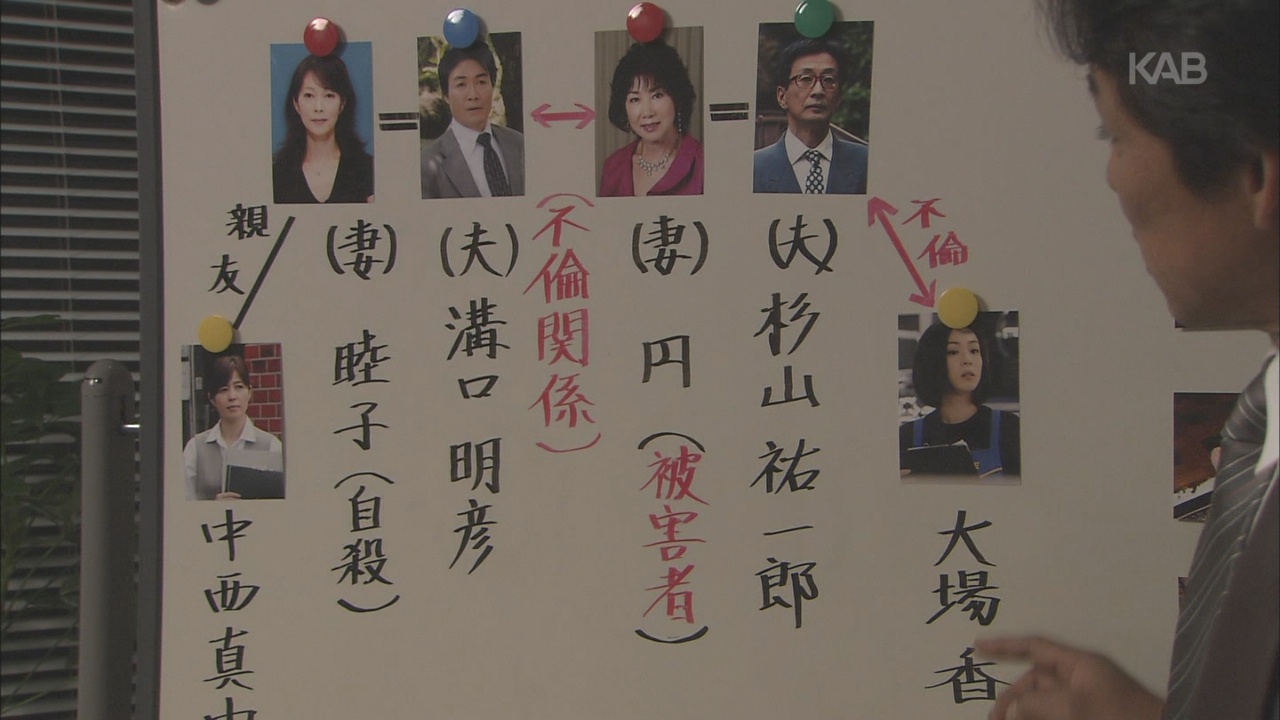 KAB
親友
(妻) 睦子(自殺)
(夫) 溝口 明彦
(不倫関係)
(妻) 円(被害者)
(夫) 杉山 祐一郎
不倫
中西真
大場 香